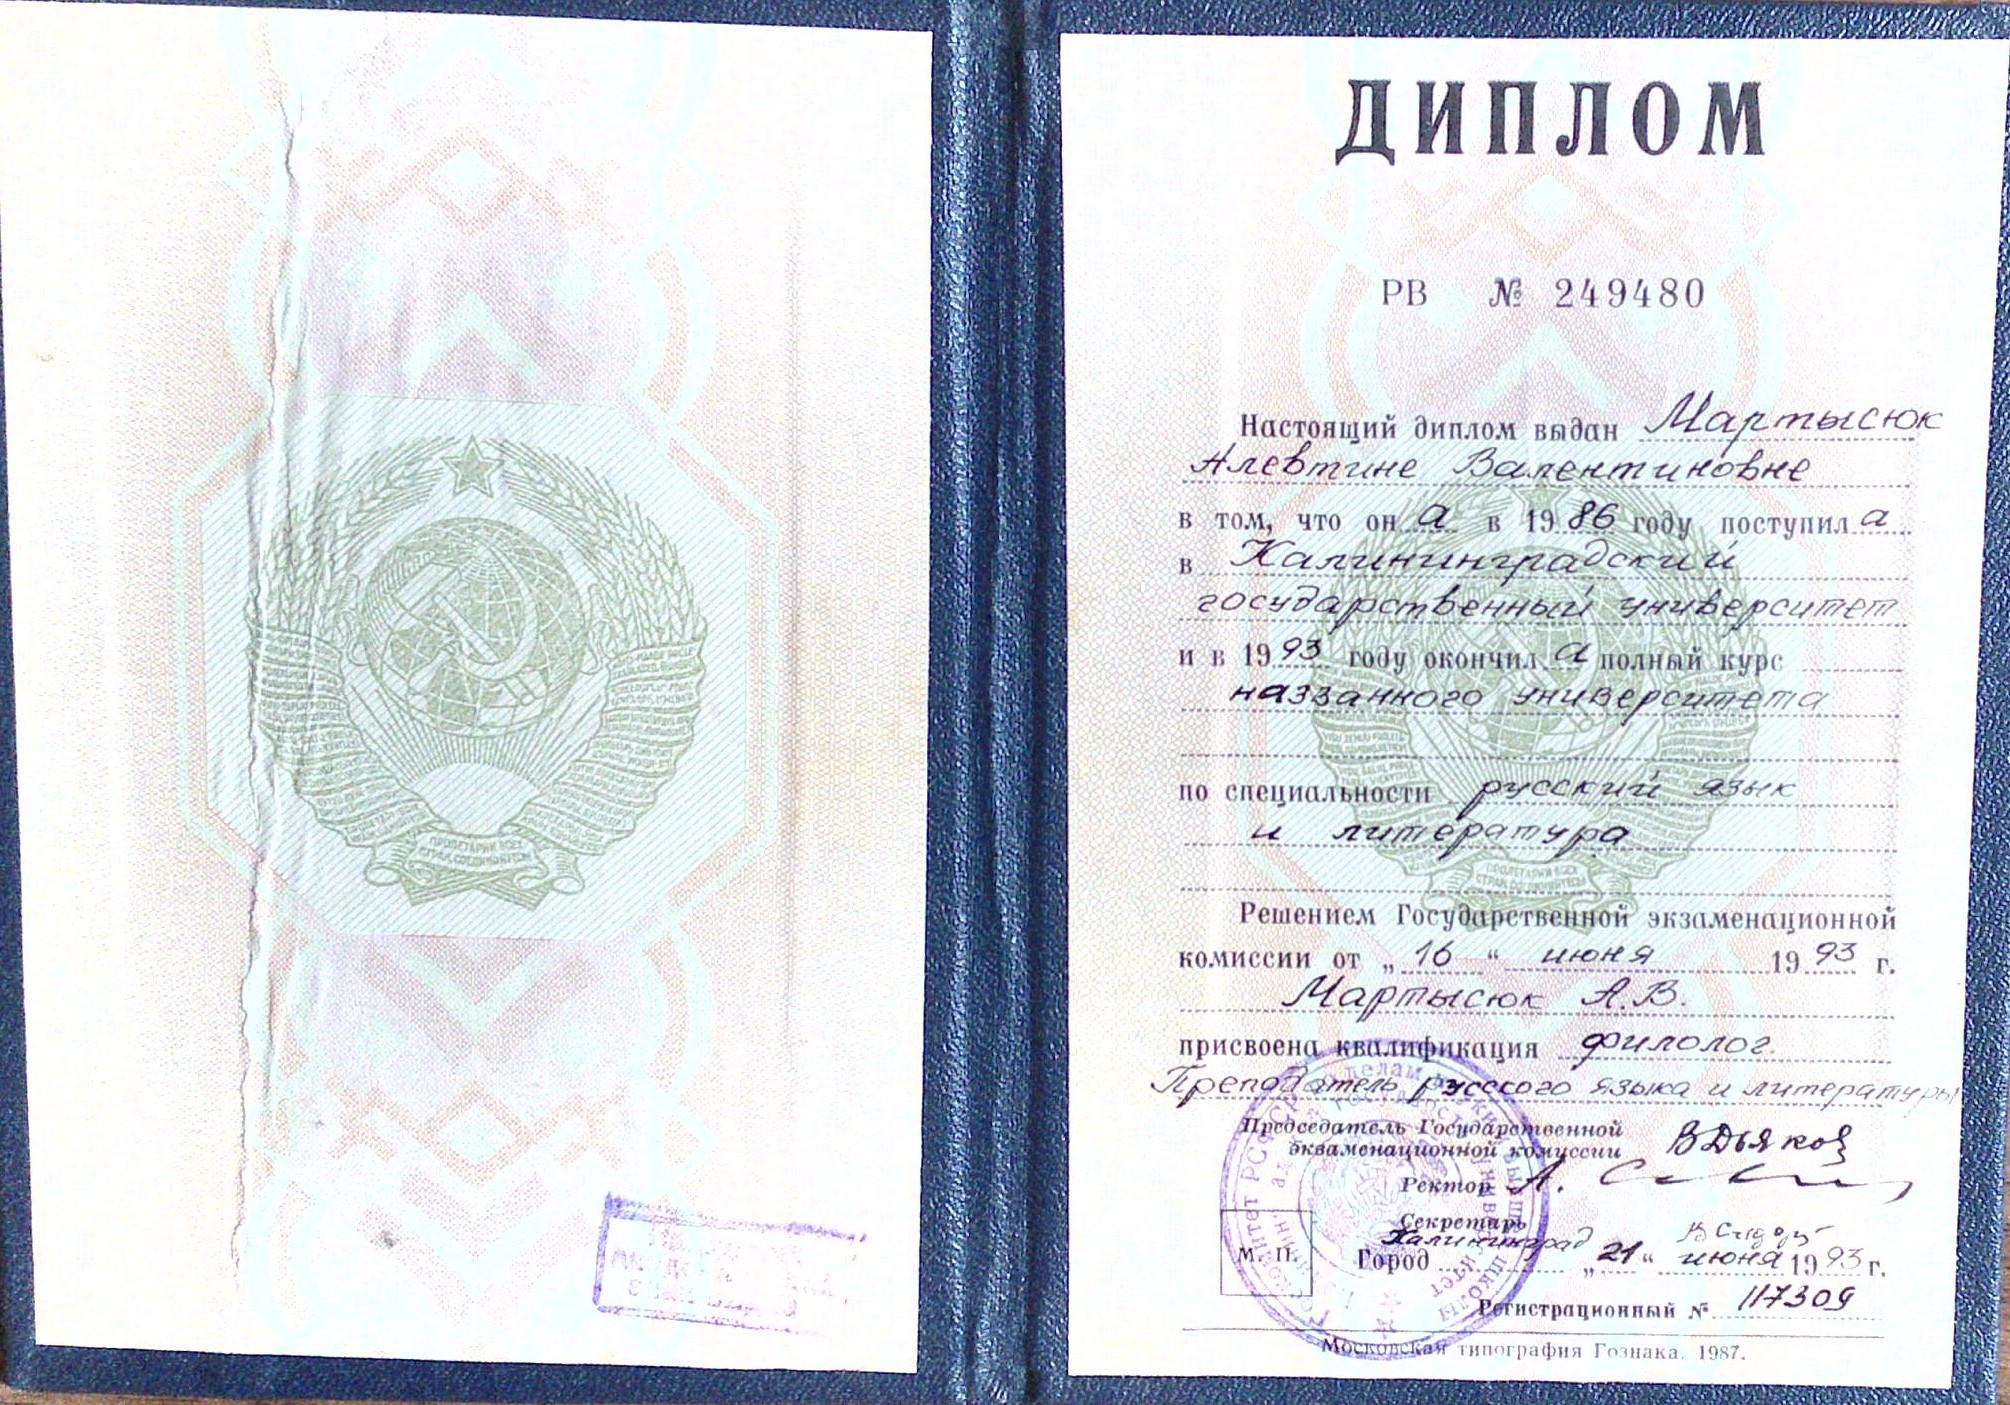 ПРОЛЕТАРИИ ВСЕХ
СТРАН, СОЕДИНЯЙТЕСЬ!
ДИПЛОМ
РВ № 249480
Настоящий диплом выдан Мартысюк
Алевтине Валентиновне
в том, что он а в 1986 году поступил а
в Калининградский
государственный университет
и в 1993 году окончил а полный курс
названного университета
по специальности русский язык
и литература
Решением Государственной экзаменационной
комиссии от „16“ июня 1993 г.
Мартысюк А.В.
присвоена квалификация филолог.
Преподаватель русского языка и литературы
Председатель Государственной
экзаменационной комиссии ВДьяков
Ректор А.
Секретарь
Калининград
М. П. Город „21“ июня 1993 г.
Регистрационный № 117309
Московская типография Гознака. 1987.